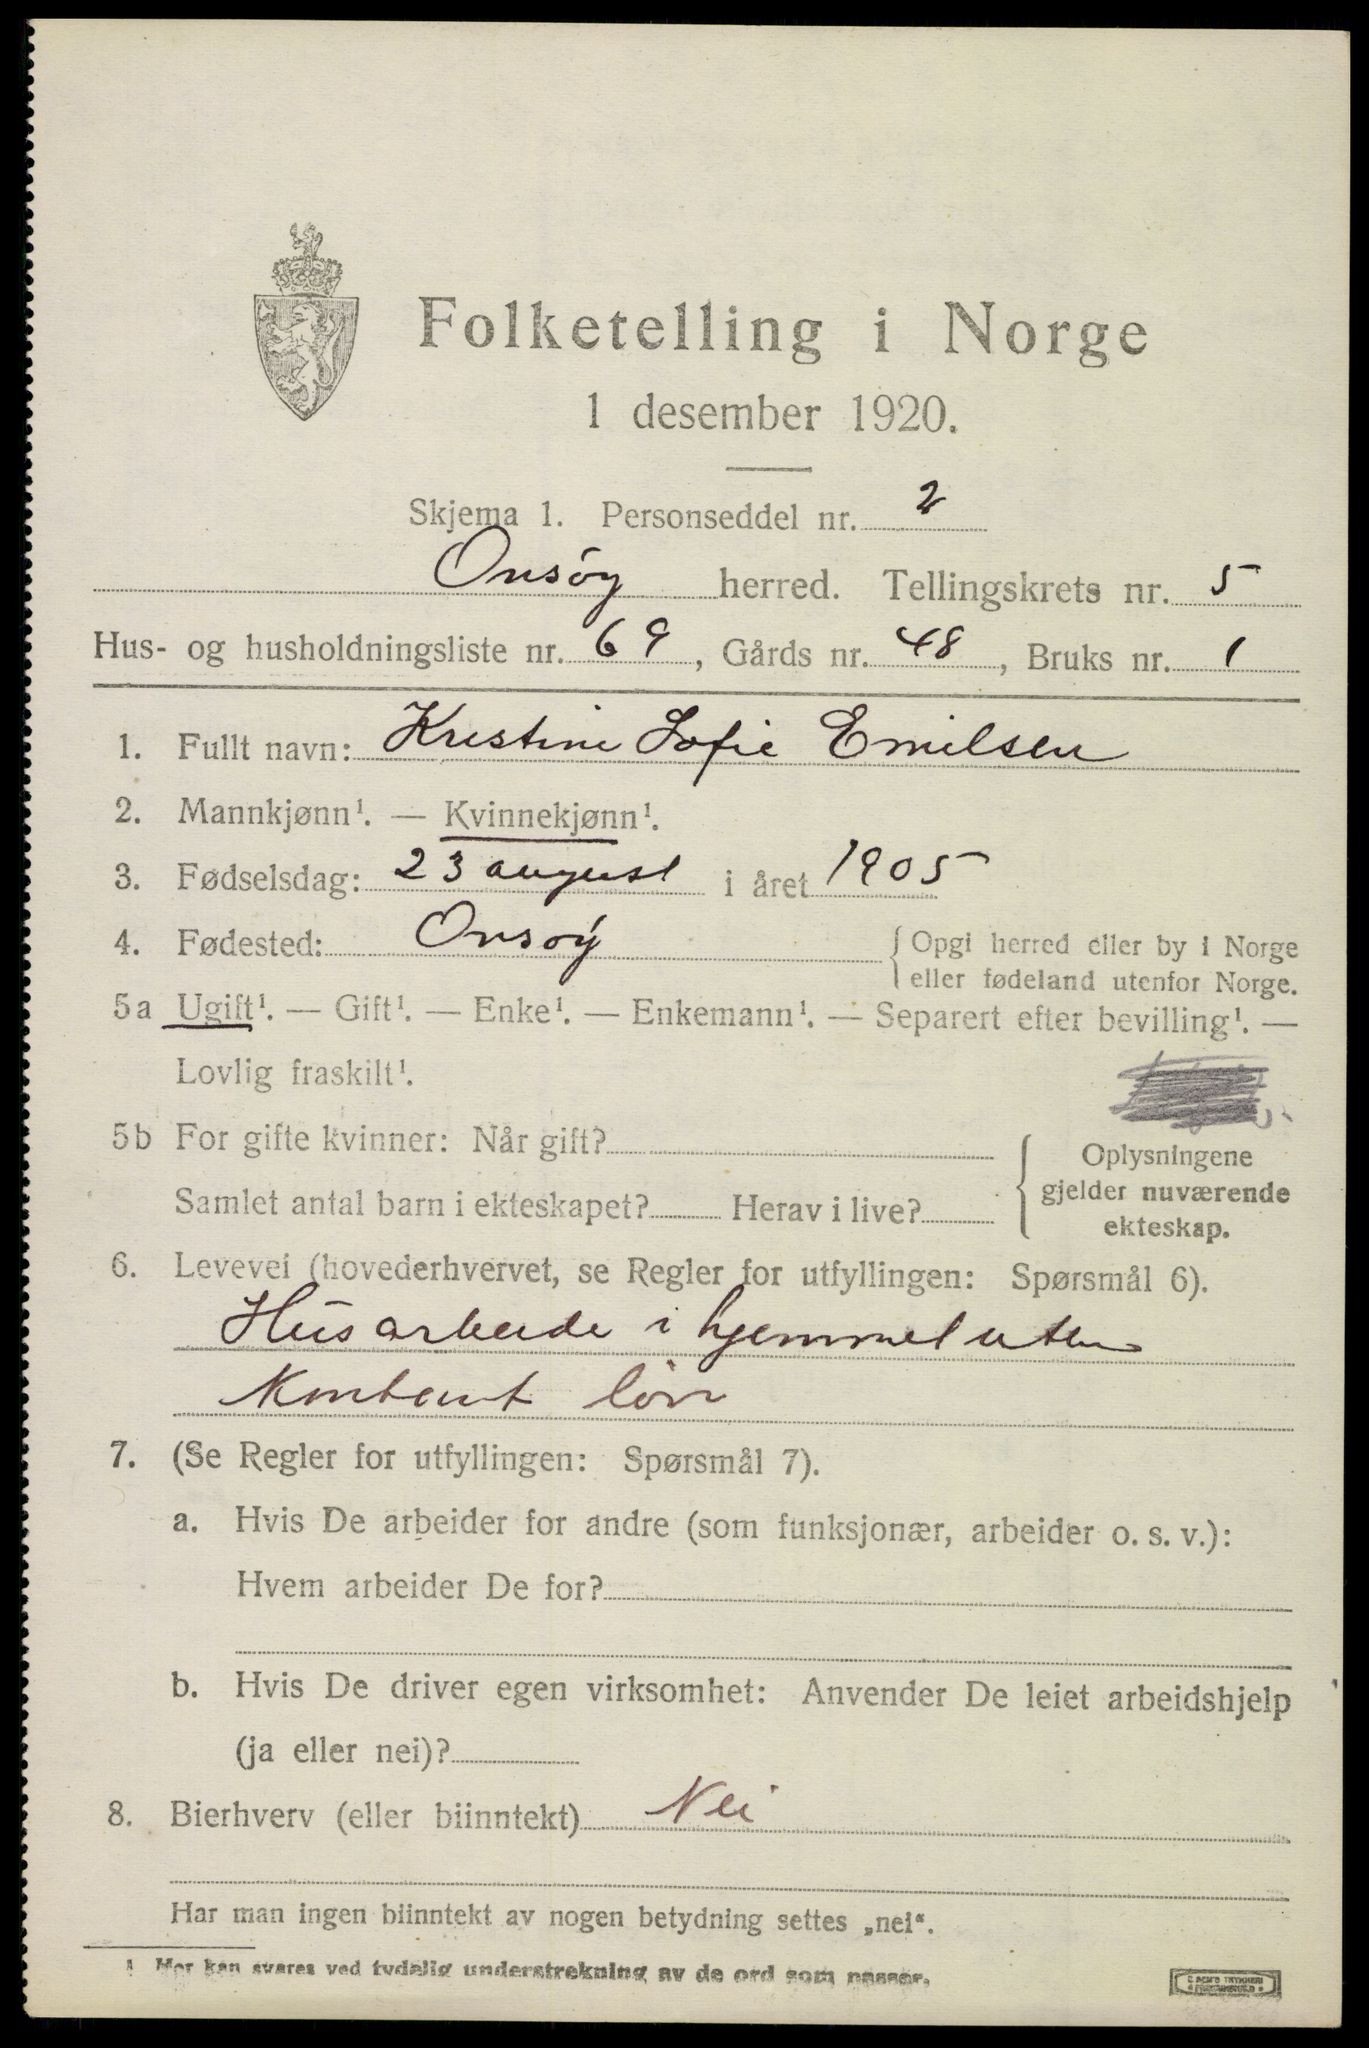 Folketelling i Norge
1 desember 1920.
Skjema 1. Personseddel nr. 2
Onsöy herred. Tellingskrets nr. 5
Hus- og husholdningsliste nr. 69, Gårds nr. 48, Bruks nr. 1
1. Fullt navn: Kristine Sofie Emilsen
2. Mannkjønn¹. — Kvinnekjønn¹.
3. Fødselsdag: 23 august i året 1905
4. Fødested: Onsöy { Opgi herred eller by i Norge
eller fødeland utenfor Norge.
5a Ugift¹. — Gift¹. — Enke¹. — Enkemann¹. — Separert efter bevilling¹. —
Lovlig fraskilt¹.
5b For gifte kvinner: Når gift?
Samlet antal barn i ekteskapet? Herav i live?
Oplysningene
gjelder nuværende
ekteskap.
6. Levevei (hovederhvervet, se Regler for utfyllingen: Spørsmål 6).
Husarbeide i hjemmet uten
Kontant lön
7. (Se Regler for utfyllingen: Spørsmål 7).
a. Hvis De arbeider for andre (som funksjonær, arbeider o. s. v.):
Hvem arbeider De for?
b. Hvis De driver egen virksomhet: Anvender De leiet arbeidshjelp
(ja eller nei)?
8. Bierhverv (eller biinntekt) Nei
Har man ingen biinntekt av nogen betydning settes „nei“.
1 Her kan svares ved tydelig understrekning av de ord som passer.